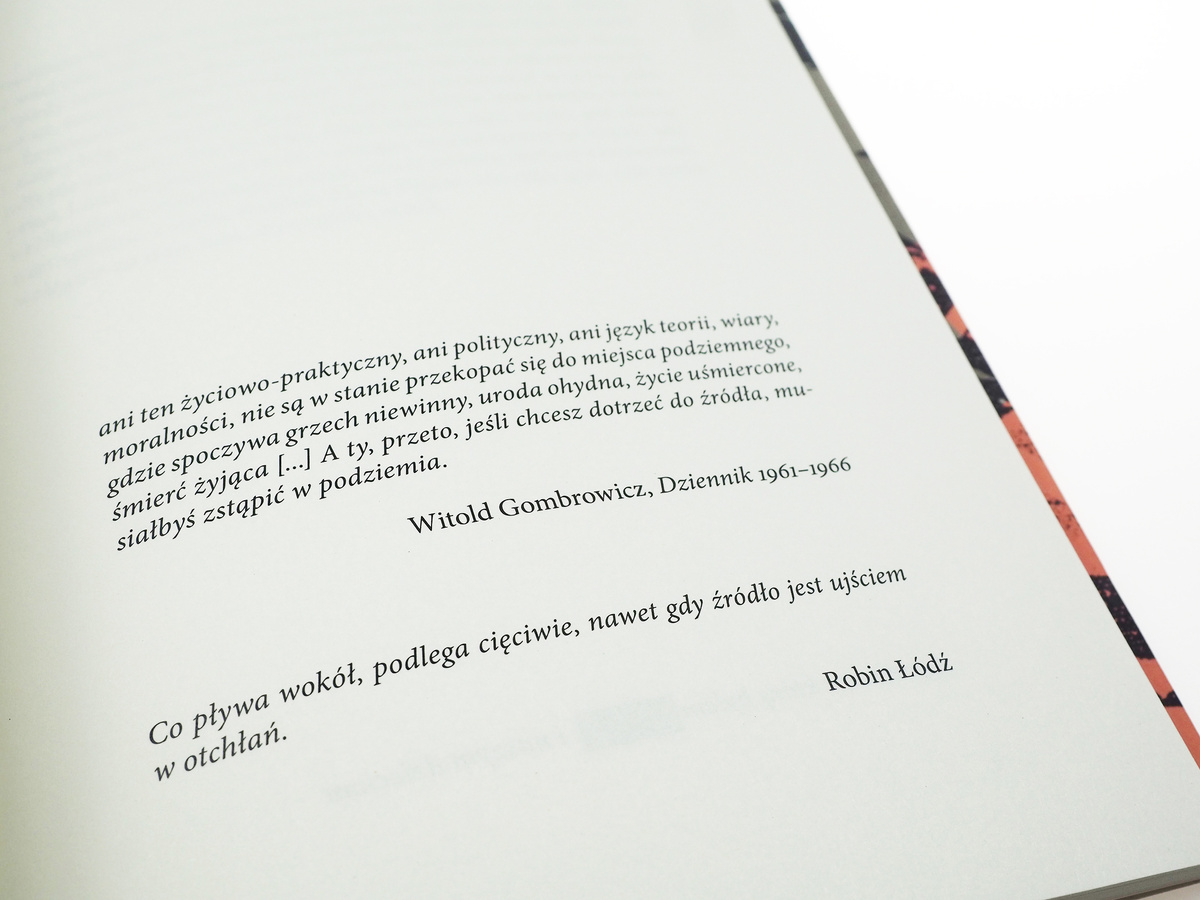 ani ten życiowo-praktyczny, ani polityczny, ani język teorii, wiary,
moralności, nie są w stanie przekopać się do miejsca podziemnego,
gdzie spoczywa grzech niewinny, uroda ohydna, życie uśmiercone,
śmierć żyjąca [...] A ty, przeto, jeśli chcesz dotrzeć do źródła, mu-
siałbyś zstąpić w podziemia.
Witold Gombrowicz, Dziennik 1961–1966
Co pływa wokół, podlega cięciwie, nawet gdy źródło jest ujściem
w otchłań.
Robin Łódź